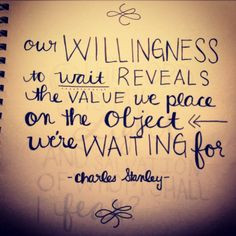 our WILLINGNESS
to wait REVEALS
the VALUE we place
on the OBJECT
we're WAITING for
-Charles Stanley-